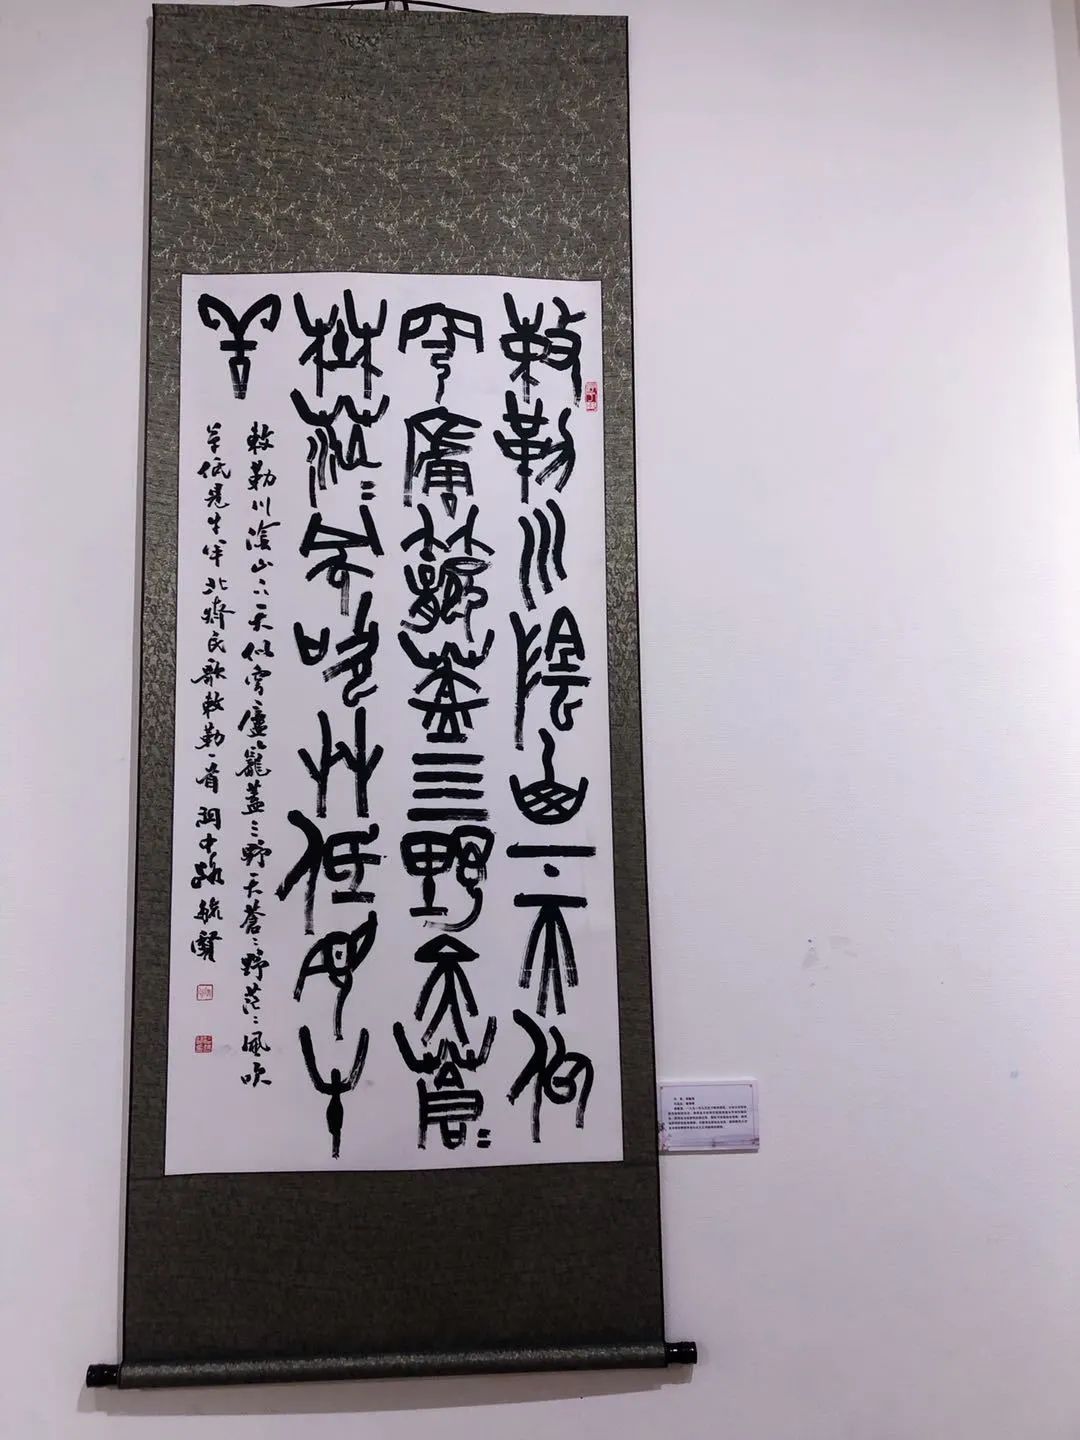 敕勒川陰山下天似
穹廬籠蓋亖野天蒼=
埜茫=風吹艸低見牛
羊
敕勒川陰山下天似穹廬籠蓋三野天蒼〻野茫〻風吹
草低見牛羊北齊民歌敕勒一首 毓賢